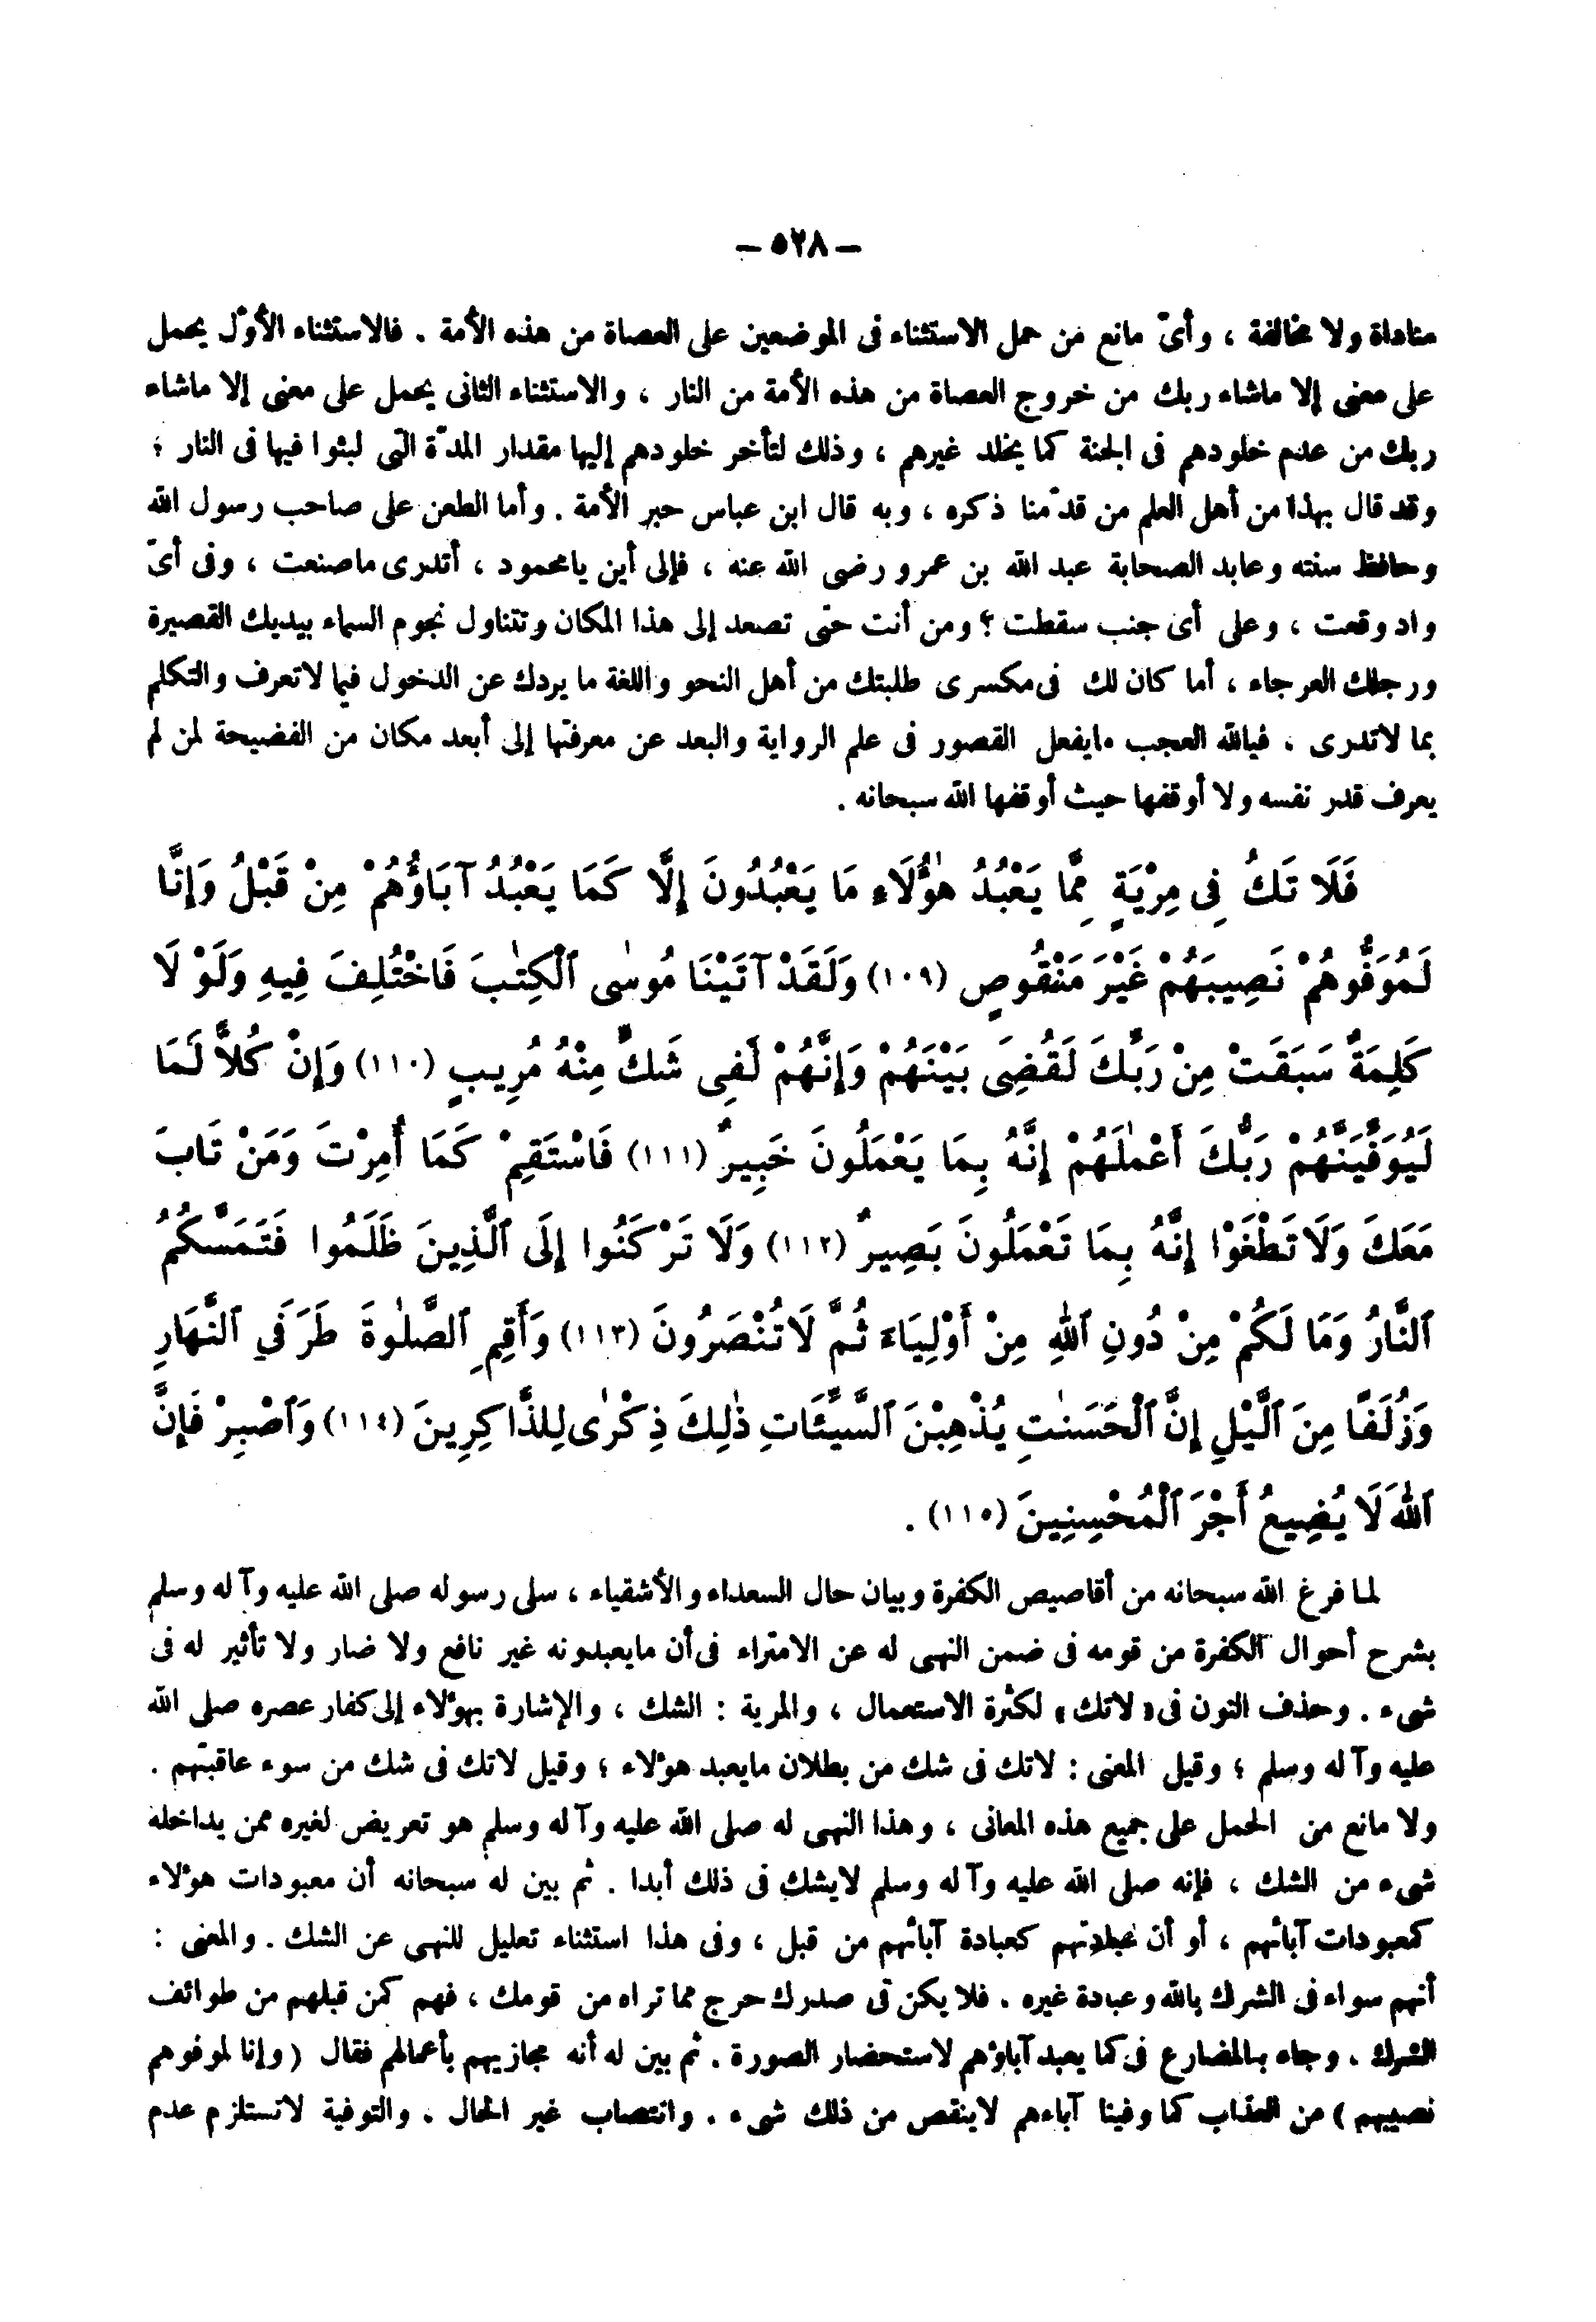 – ٥٢٨ –
مناداة ولا مخالفة ، وأىّ مانع من حمل الاستثناء فى الموضعين على العصاة من هذه الأمة . فالاستثناء الأوّل يحمل
على معنى إلا ماشاء ربك من خروج العصاة من هذه الأمة من النار ، والاستثناء الثانى يحمل على معنى إلا ماشاء
ربك من عدم خلودهم فى الجنة كما يخلد غيرهم ، وذلك لتأخر خلودهم إليها مقدار المدّة التى لبثوا فيها فى النار ؛
وقد قال بهذا من أهل العلم من قدّمنا ذكره ، وبه قال ابن عباس حبر الأمة . وأما الطعن على صاحب رسول الله
وحافظ سنته وعابد الصحابة عبد الله بن عمرو رضى الله عنه ، فإلى أين يامحمود ، أتدرى ماصنعت ، وفى أىّ
واد وقعت ، وعلى أى جنب سقطت ؟ ومن أنت حتى تصعد إلى هذا المكان وتتناول نجوم السماء بيديك القصيرة
ورجلك العرجاء ، أما كان لك فى مكسرى طلبتك من أهل النحو واللغة ما يردك عن الدخول فيما لاتعرف والتكلم
بما لاتدرى ، فيالله العجب مايفعل القصور فى علم الرواية والبعد عن معرفتها إلى أبعد مكان من الفضيحة لمن لم
يعرف قدر نفسه ولا أوقفها حيث أوقفها الله سبحانه .
فَلَا تَكُ فِى مِرْيَةٍ مِمَّا يَعْبُدُ هٰؤُلَاءِ مَا يَعْبُدُونَ إِلَّا كَمَا يَعْبُدُ آبَاؤُهُمْ مِنْ قَبْلُ وَإِنَّا
لَمُوَفُّوهُمْ نَصِيبَهُمْ غَيْرَ مَنْقُوصٍ (١٠٩) وَلَقَدْ آتَيْنَا مُوسٰى ٱلْكِتٰبَ فَاخْتُلِفَ فِيهِ وَلَوْ لَا
كَلِمَةٌ سَبَقَتْ مِنْ رَبِّكَ لَقُضِىَ بَيْنَهُمْ وَإِنَّهُمْ لَفِى شَكٍّ مِنْهُ مُرِيبٍ (١١٠) وَإِنْ كُلاًّ لَمَا
لَيُوَفِّيَنَّهُمْ رَبُّكَ أَعْمٰلَهُمْ إِنَّهُ بِمَا يَعْمَلُونَ خَبِيرٌ (١١١) فَاسْتَقِمْ كَمَا أُمِرْتَ وَمَنْ تَابَ
مَعَكَ وَلَا تَطْغَوْا إِنَّهُ بِمَا تَعْمَلُونَ بَصِيرٌ (١١٢) وَلَا تَرْكَنُوا إِلَى ٱلَّذِينَ ظَلَمُوا فَتَمَسَّكُمُ
ٱلنَّارُ وَمَا لَكُمْ مِنْ دُونِ ٱللهِ مِنْ أَوْلِيَاءَ ثُمَّ لَا تُنْصَرُونَ (١١٣) وَأَقِمِ ٱلصَّلٰوةَ طَرَفَيِ ٱلنَّهَارِ
وَزُلَفًا مِنَ ٱلَّيْلِ إِنَّ ٱلْحَسَنٰتِ يُذْهِبْنَ ٱلسَّيِّئَاتِ ذٰلِكَ ذِكْرٰى لِلذَّاكِرِينَ (١١٤) وَٱصْبِرْ فَإِنَّ
ٱللهَ لَا يُضِيعُ أَجْرَ ٱلْمُحْسِنِينَ (١١٥) .
لما فرغ الله سبحانه من أقاصيص الكفرة وبيان حال السعداء والأشقياء ، سلى رسوله صلى الله عليه وآله وسلم
بشرح أحوال الكفرة من قومه فى ضمن النهى له عن الامتراء فى أن مايعبدونه غير نافع ولا ضار ولا تأثير له فى
شىء . وحذف النون فى « لاتك » لكثرة الاستعمال ، والمرية : الشك ، والإشارة بهؤلاء إلى كفار عصره صلى الله
عليه وآله وسلم ؛ وقيل المعنى : لاتك فى شك من بطلان مايعبد هؤلاء ؛ وقيل لاتك فى شك من سوء عاقبتهم .
ولا مانع من الحمل على جميع هذه المعانى ، وهذا النهى له صلى الله عليه وآله وسلم هو تعريض لغيره ممن يداخله
شىء من الشك ، فإنه صلى الله عليه وآله وسلم لايشك فى ذلك أبدا . ثم بين له سبحانه أن معبودات هؤلاء
كمعبودات آبائهم ، أو أن عبادتهم كعبادة آبائهم من قبل ، وفى هذا استثناء تعليل للنهى عن الشك . والمعنى :
أنهم سواء فى الشرك بالله وعبادة غيره . فلا يكن فى صدرك حرج مما تراه من قومك ، فهم كمن قبلهم من طوائف
الشرك ، وجاء بالمضارع فى كما يعبد آباؤهم لاستحضار الصورة . ثم بين له أنه مجازيهم بأعمالهم فقال ( وإنا لموفوهم
نصيبهم ) من العذاب كما وفينا آباءهم لاينقص من ذلك شىء . وانتصاب غير الحال . والتوفية لاتستلزم عدم